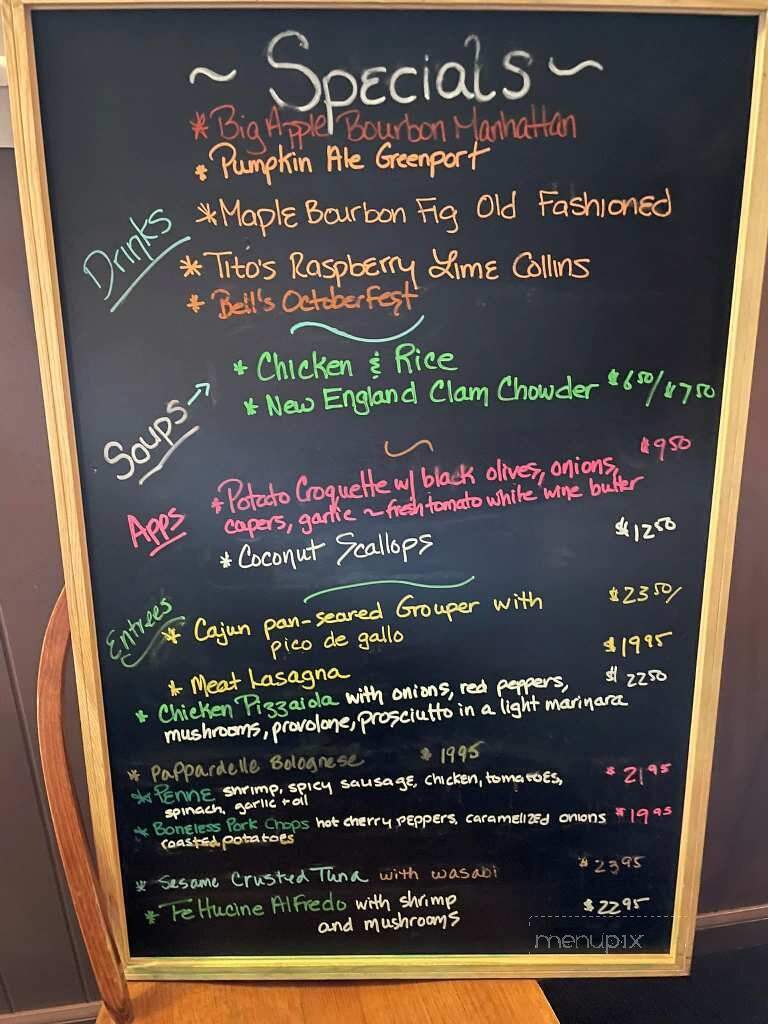 ~ Specials ~
* Big Apple Bourbon Manhattan
* Pumpkin Ale Greenport
Drinks
* Maple Bourbon Fig Old Fashioned
* Tito's Raspberry Lime Collins
* Bell's Octoberfest
Soups →
* Chicken & Rice
* New England Clam Chowder $6 50/$7 50
Apps
* Potato Croquette w/ black olives, onions, $9 50
capers, garlic ~ fresh tomato white wine butter
* Coconut Scallops $12 50
Entrees
* Cajun pan-seared Grouper with $23 50/
pico de gallo
* Meat Lasagna $19 95
* Chicken Pizzaiola with onions, red peppers, $22 50
mushrooms, provolone, prosciutto in a light marinara
* Pappardelle Bolognese $19 95
* Penne shrimp, spicy sausage, chicken, tomatoes, $21 95
spinach, garlic + oil
* Boneless Pork Chops hot cherry peppers, caramelized onions $19 95
roasted potatoes
* Sesame Crusted Tuna with wasabi $23 95
* Fettucine Alfredo with shrimp $22 95
and mushrooms
menupix